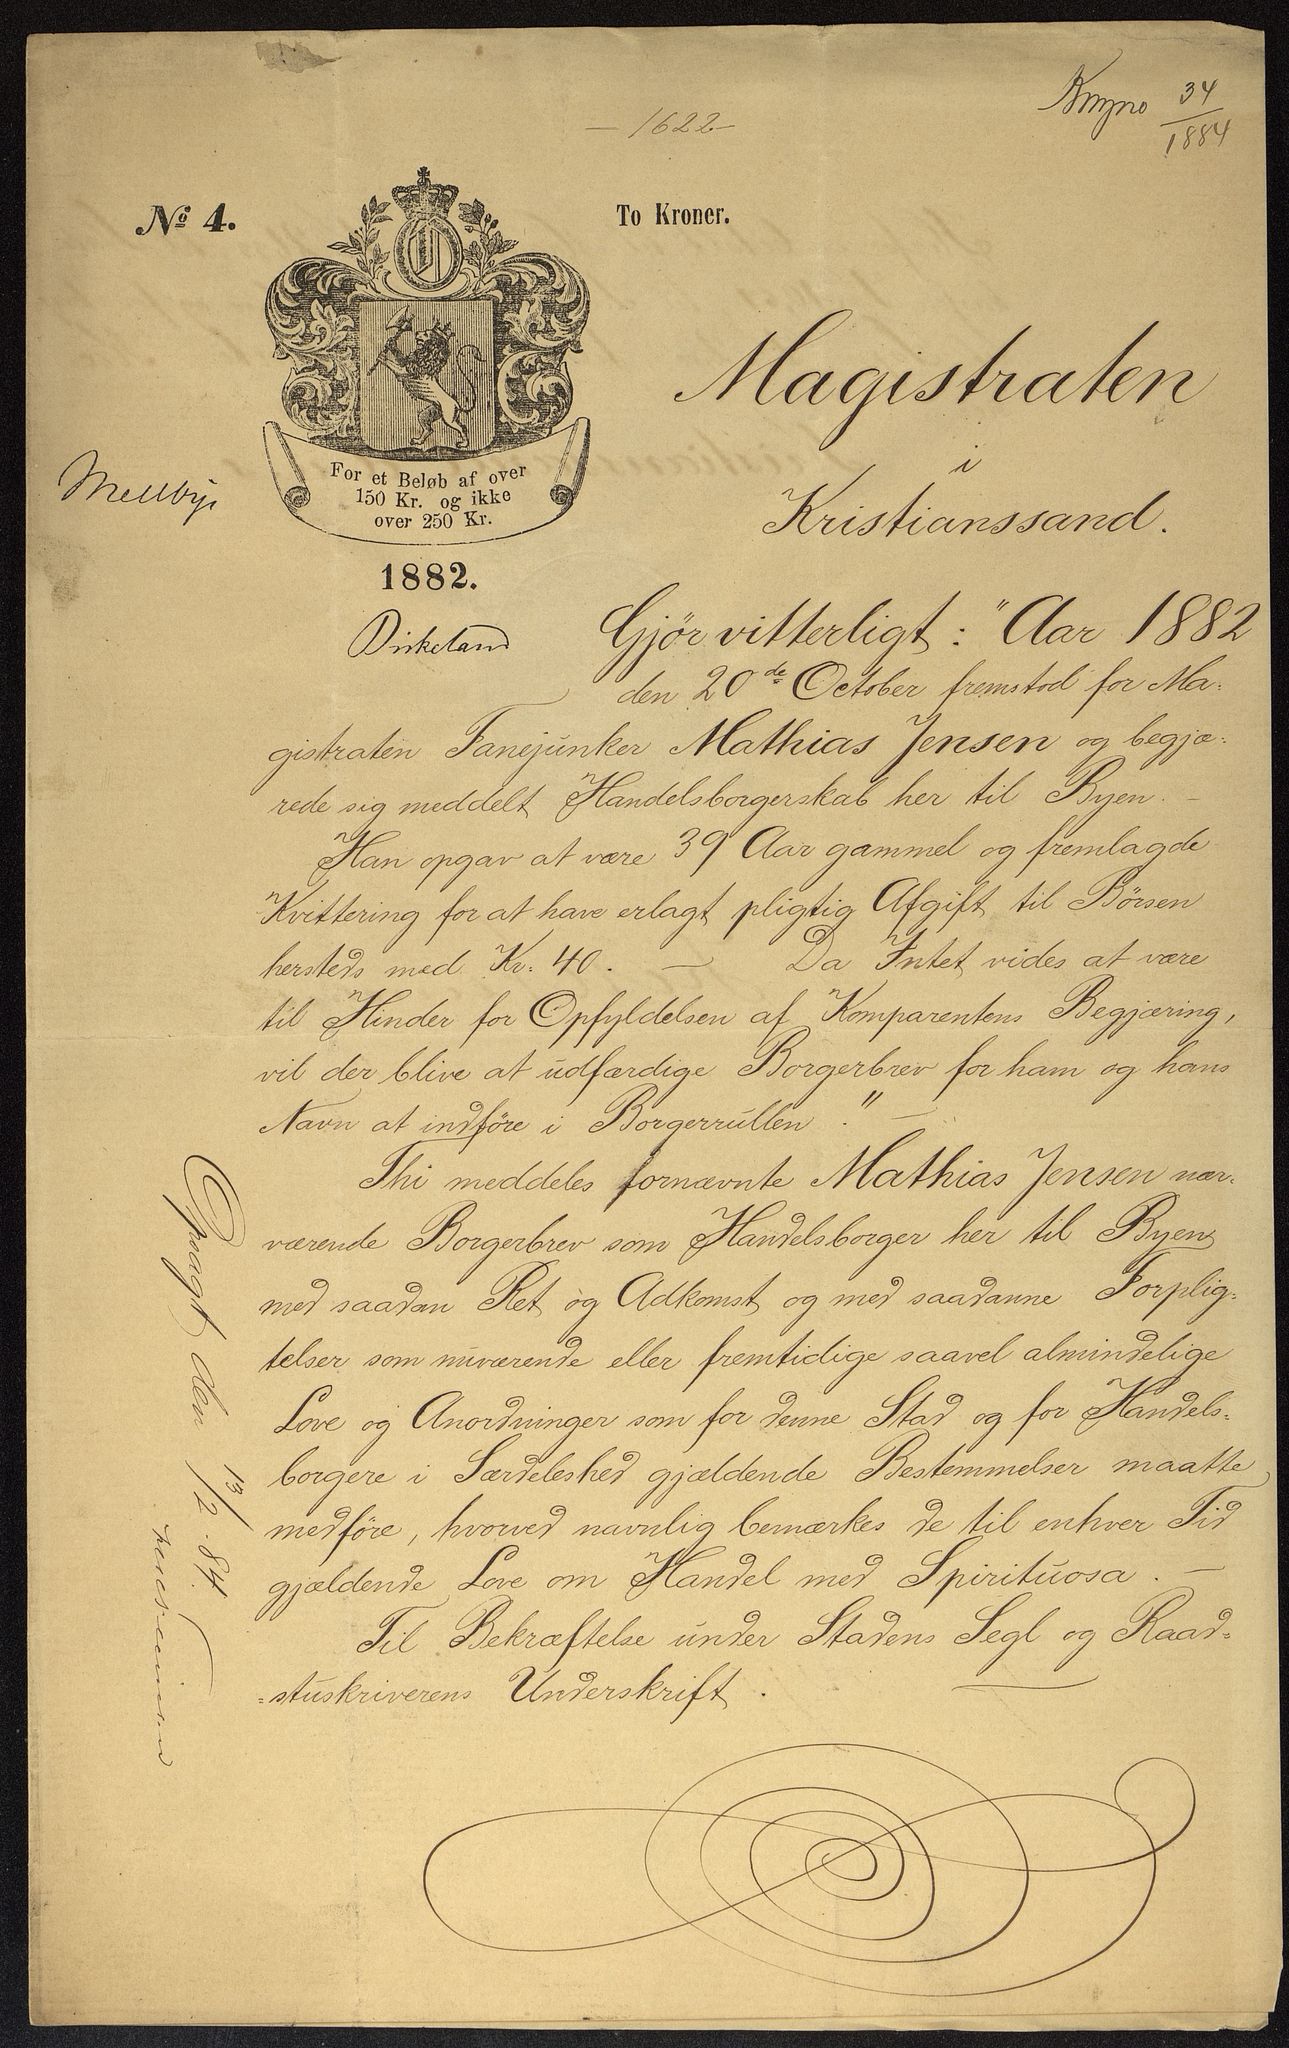 34
1884
— 1622 —
No 4.
To Kroner.
Magistraten
i
Kristianssand.
For et Beløb af over
150 Kr. og ikke
over 250 Kr.
1882.
Birkeland
Gjør vitterligt: "Aar 1882
den 20de October fremstod for Ma-
gistraten Fanejunker Mathias Jensen og begjæ-
rede sig meddelt Handelsborgerskab her til Byen. —
Han opgav at være 39 Aar gammel og fremlagde
Kvittering for at have erlagt pligtig Afgift til Børsen
hersteds med Kr. 40. — Da Intet vides at være
til Hinder for Opfyldelsen af Komparentens Begjæring,
vil der blive at udfærdige Borgerbrev for ham og hans
Navn at indføre i Borgerrullen." —
Thi meddeles fornævnte Mathias Jensen nær-
værende Borgerbrev som Handelsborger her til Byen
med saadan Ret og Adkomst og med saadanne Forplig-
telser som nuværende eller fremtidige saavel almindelige
Love og Anordninger som for denne Stad og for Handels-
borgere i Særdeleshed gjældende Bestemmelser maatte
medføre, hvorved navnlig bemærkes de til enhver Tid
gjældende Love om Handel med Spirituosa. —
Til Bekræftelse under Stadens Segl og Raad-
-stuskriverens Underskrift.
Opsagt den 13/2. 84.